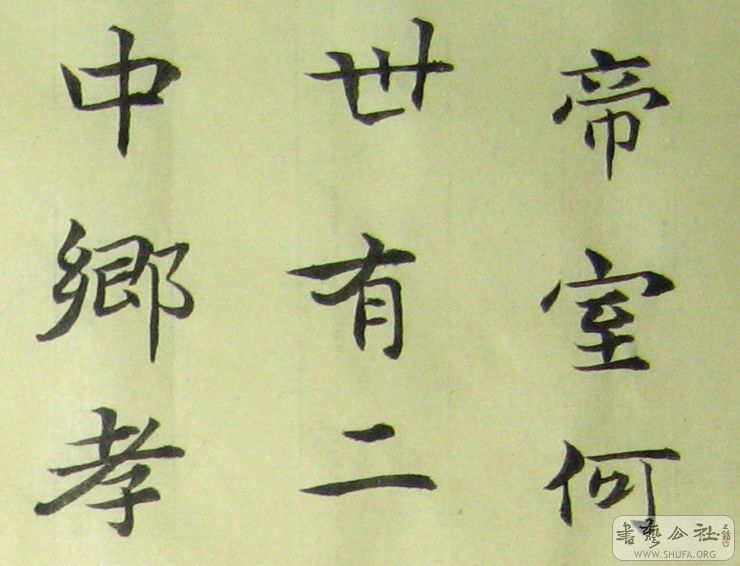 帝室何
丗有二
中鄉孝
書藝公社
WWW.SHUFA.ORG